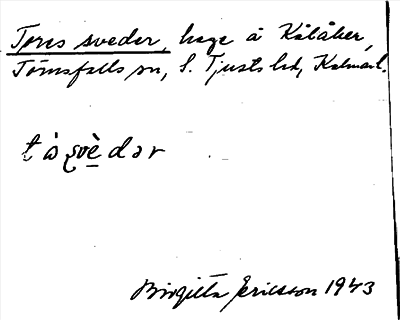 Tores sveder, hage å Kålåker,
Törnsfalls sn, S. Tjusts hd, Kalmar l.
Birgitta Ericsson 1943